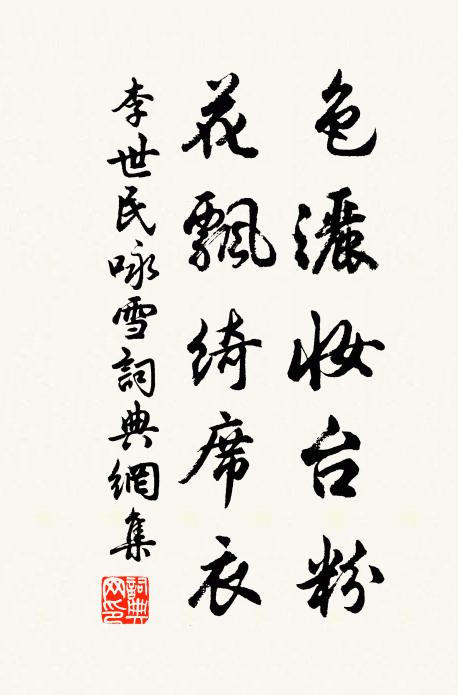 色灑妝台粉
花飄綺席衣
李世民咏雪詞典網集
詞典網印